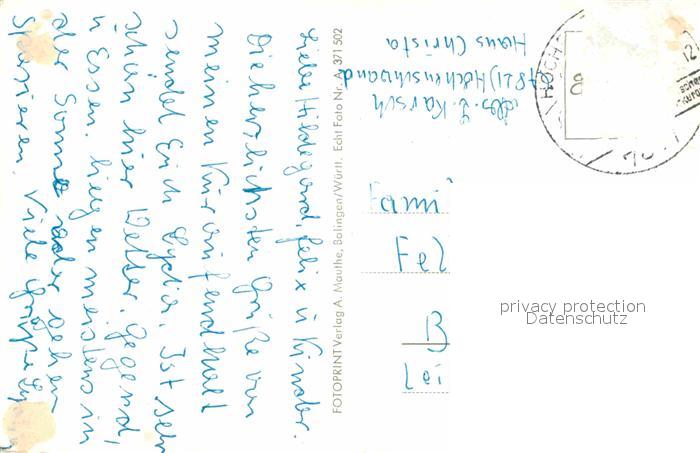 Liebe Hildegard, Felix u Kinder.
Die herzlichsten Grüße von
meinem Kuraufenthalt
sendet Euch Lydia. Ist sehr
schön hier Wetter, Gegend,
u Essen. Liegen meistens in
der Sonne oder gehen
spazieren. Viele Grüße Ly
FOTOPRINT Verlag A. Mauthe, Balingen/Württ. Echt Foto Nr. A 371 502
Abs. L. Karsch
(7821) Höchenschwand
Haus Christa
HÖCH
12
Fami
Fel
B
Lei
privacy protection
Datenschutz